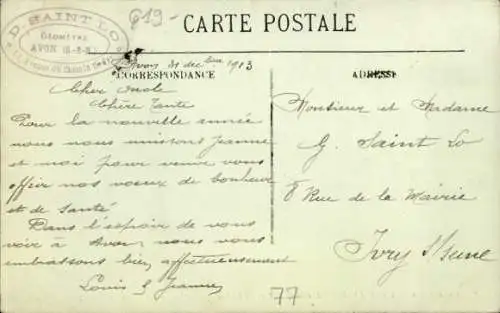 D. SAINT LO
GÉOMÈTRE
AVON (S.-&-M.)
619-
CARTE POSTALE
Avon 31 décembre 1913
CORRESPONDANCE
ADRESSE
Cher Oncle
Chère Tante
Pour la nouvelle année
nous nous unissons Jeanne
et moi pour venir vous
offrir nos voeux de bonheur
et de Santé
Dans l'espoir de vous
voir à Avon, nous vous
embrassons bien affectueusement
Louis & Jeanne
Monsieur et Madame
G. Saint Lo
8 Rue de la Mairie
Ivry s/Seine
77